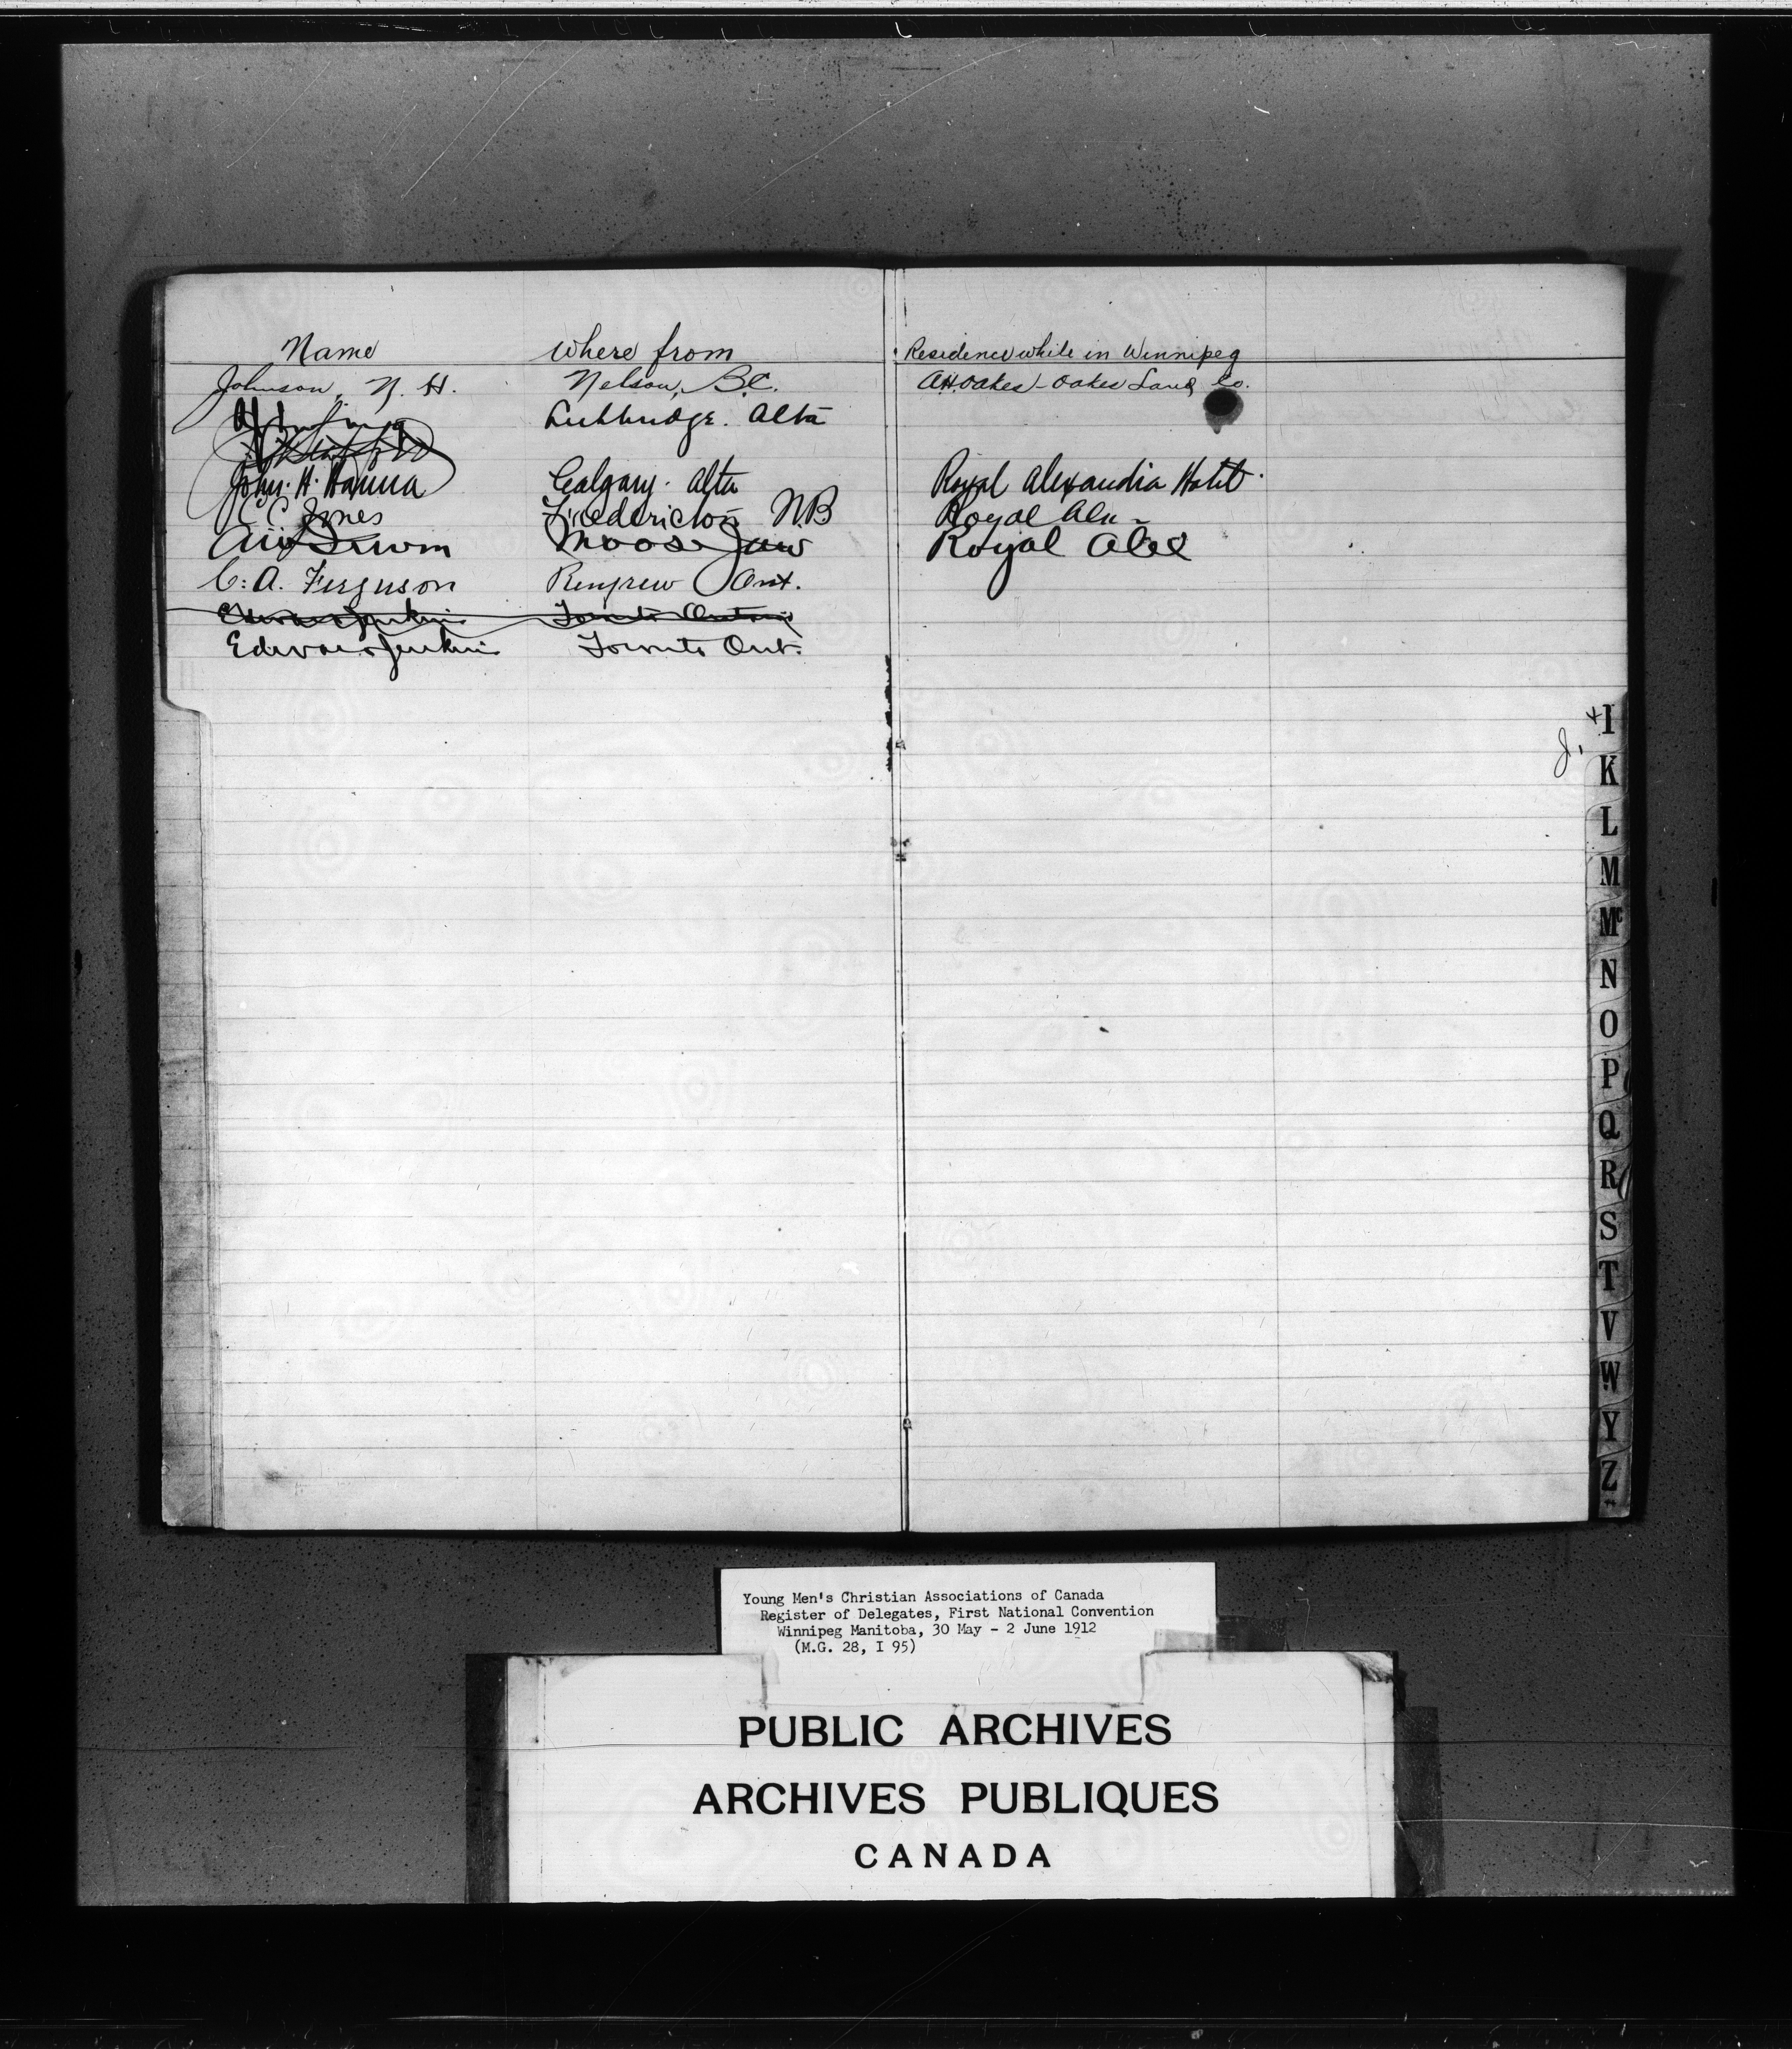 Name Where from Residence while in Winnipeg
Johnson, N. H. Nelson, B.C. A.H. Oakes - Oakes Land Co.
Lethbridge. Alta
John. H. Hanna Calgary. Alta Royal Alexandra Hotel.
C C Jones Fredericton NB Royal Alex -
Moose Jaw Royal Alex
C. A. Ferguson Renfrew Ont.
Edward Jenkins Toronto Ontario
Edward Jenkins Toronto Ont.
J.
+ I
K
L
M
Mc
N
O
P
Q
R
S
T
V
W
Y
Z
Young Men's Christian Associations of Canada
Register of Delegates, First National Convention
Winnipeg Manitoba, 30 May - 2 June 1912
(M.G. 28, I 95)
PUBLIC ARCHIVES
ARCHIVES PUBLIQUES
CANADA